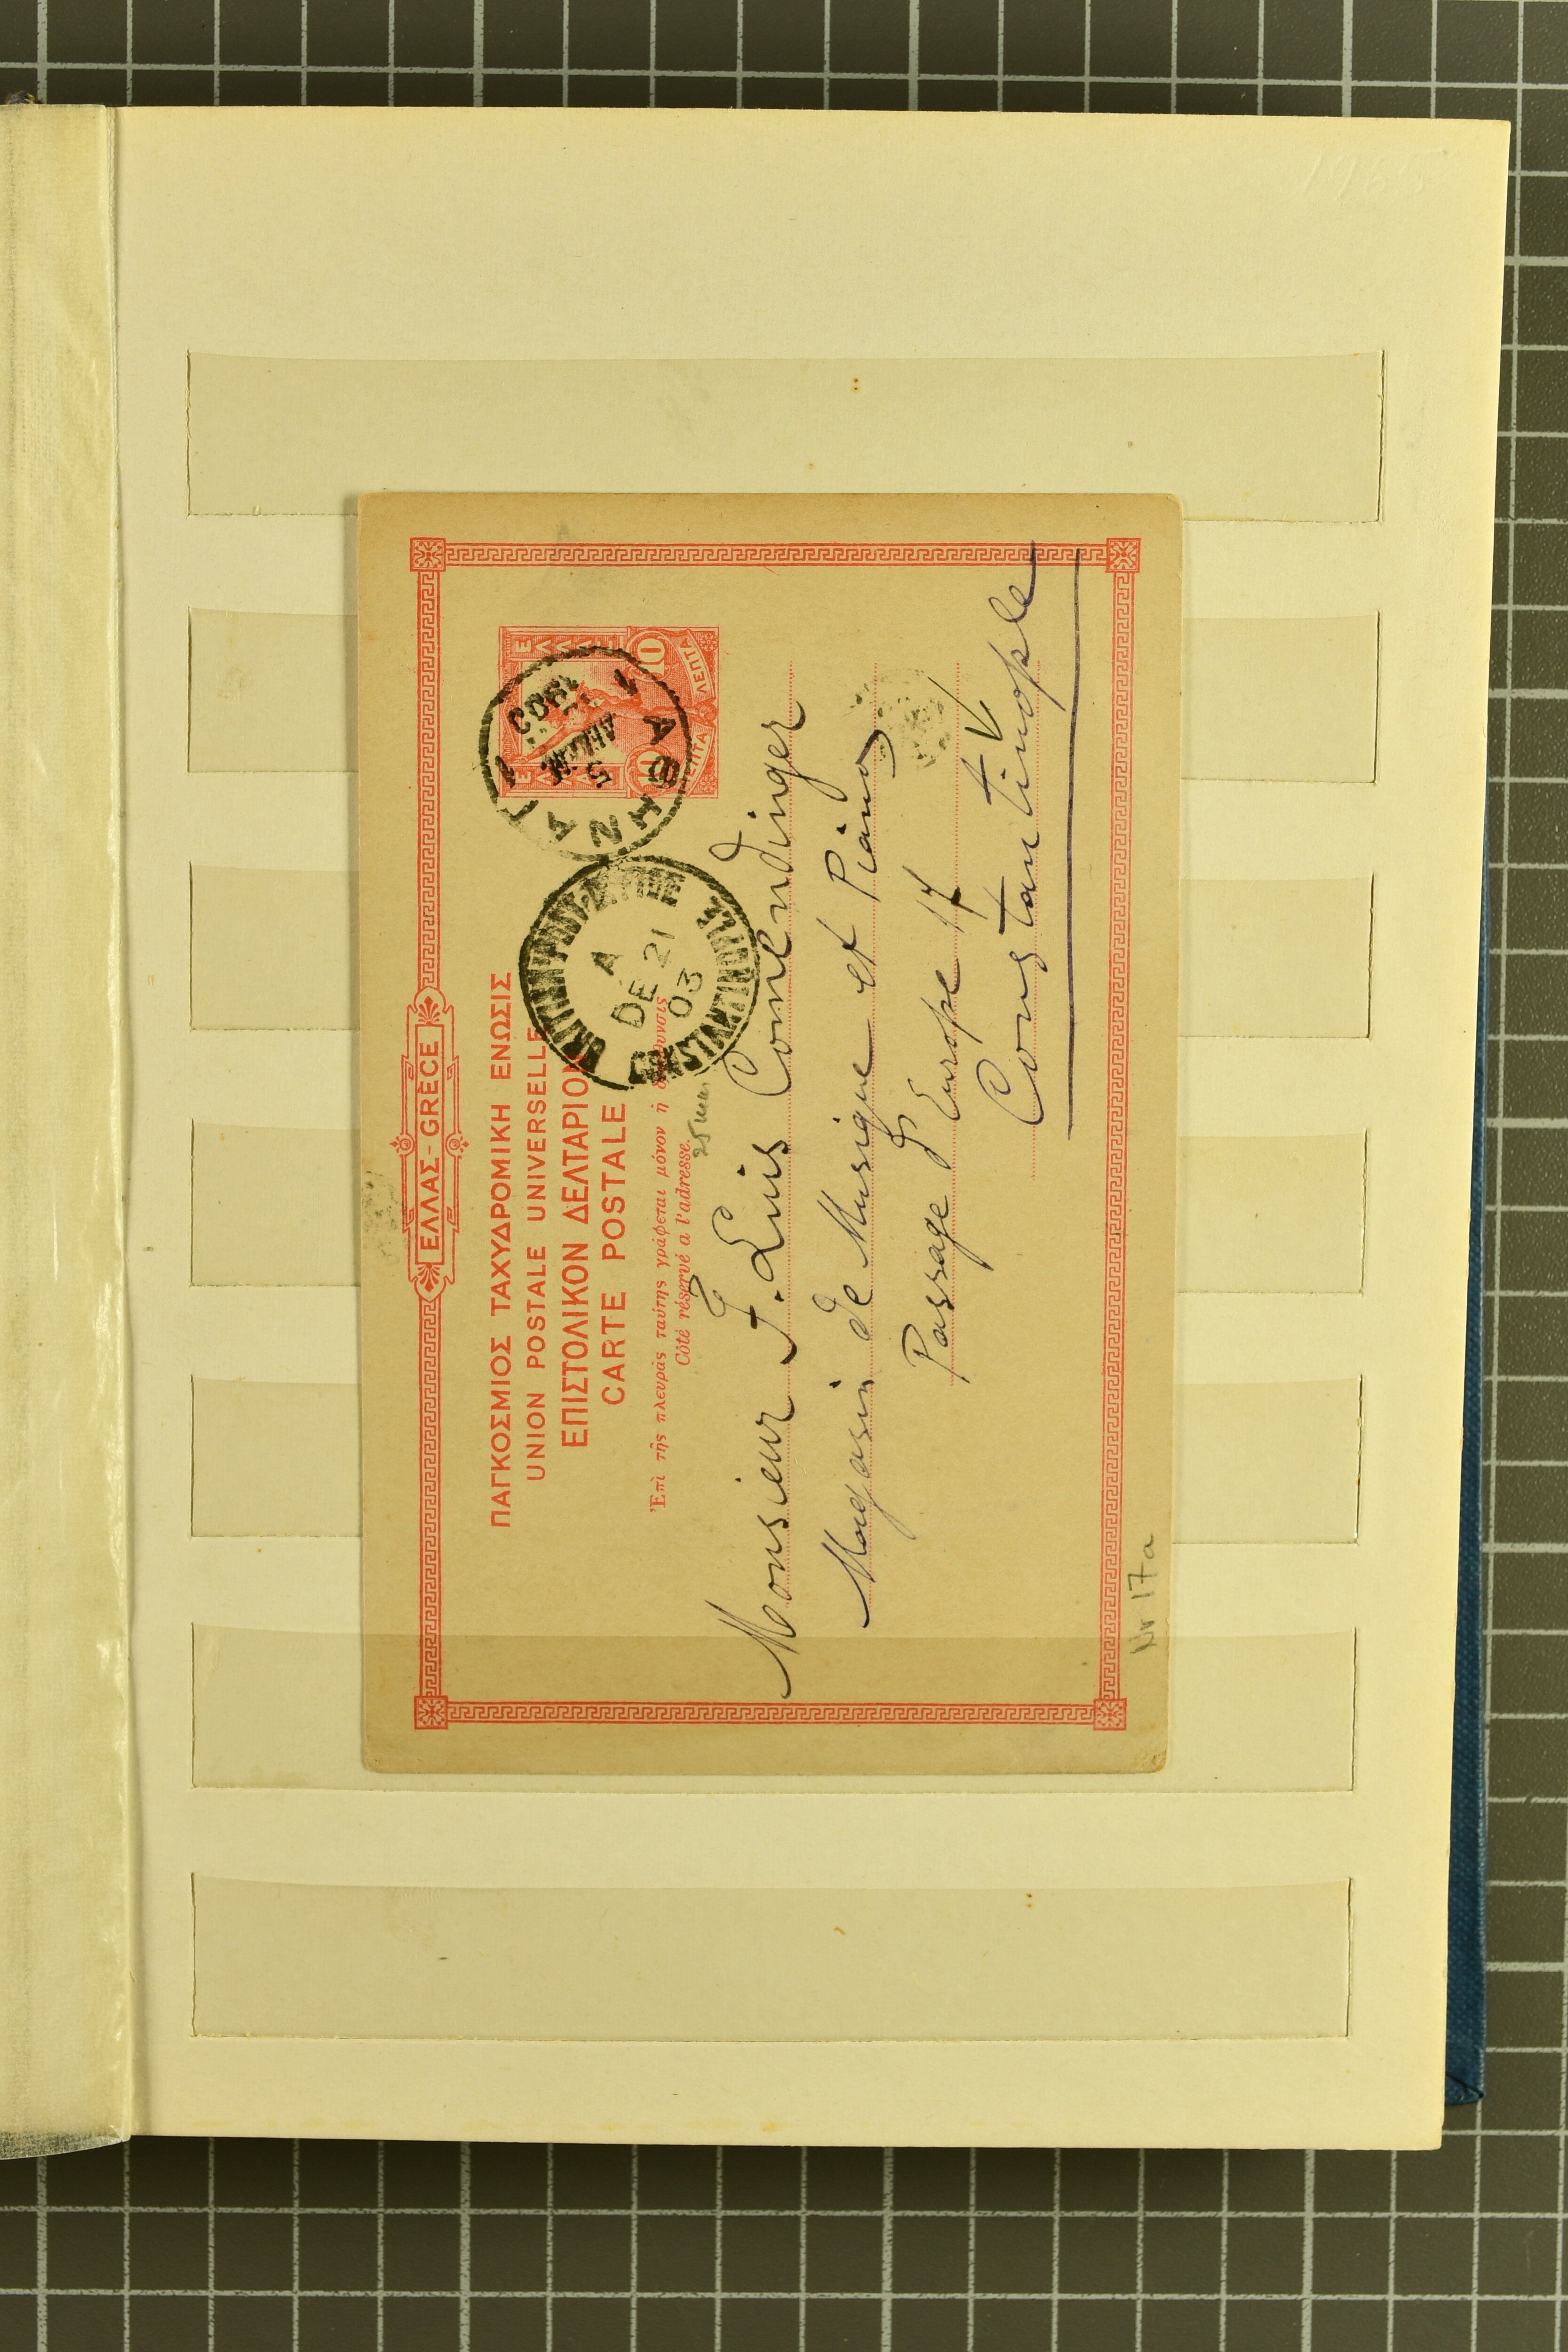 ΕΛΛΑΣ-GRÈCE
ΠΑΓΚΟΣΜΙΟΣ ΤΑΧΥΔΡΟΜΙΚΗ ΕΝΩΣΙΣ
UNION POSTALE UNIVERSELLE
ΕΠΙΣΤΟΛΙΚΟΝ ΔΕΛΤΑΡΙΟΝ
CARTE POSTALE
Ἐπὶ τῆς πλευρᾶς ταύτης γράφεται μόνον ἡ διεύθυνσις
Côté réservé a l'adresse.
ΕΛΛΑΣ
10 ΛΕΠΤΑ
10 ΛΕΠΤΑ
1 ΑΘΗΝΑΙ 1
5
1903
BRITISH POST-OFFICE
CONSTANTINOPLE
A
DE 21
03
Monsieur F. Luis Comendinger
Magasin de Musique et Piano
Passage d'Europe 17
Constantinople
Nr 17a